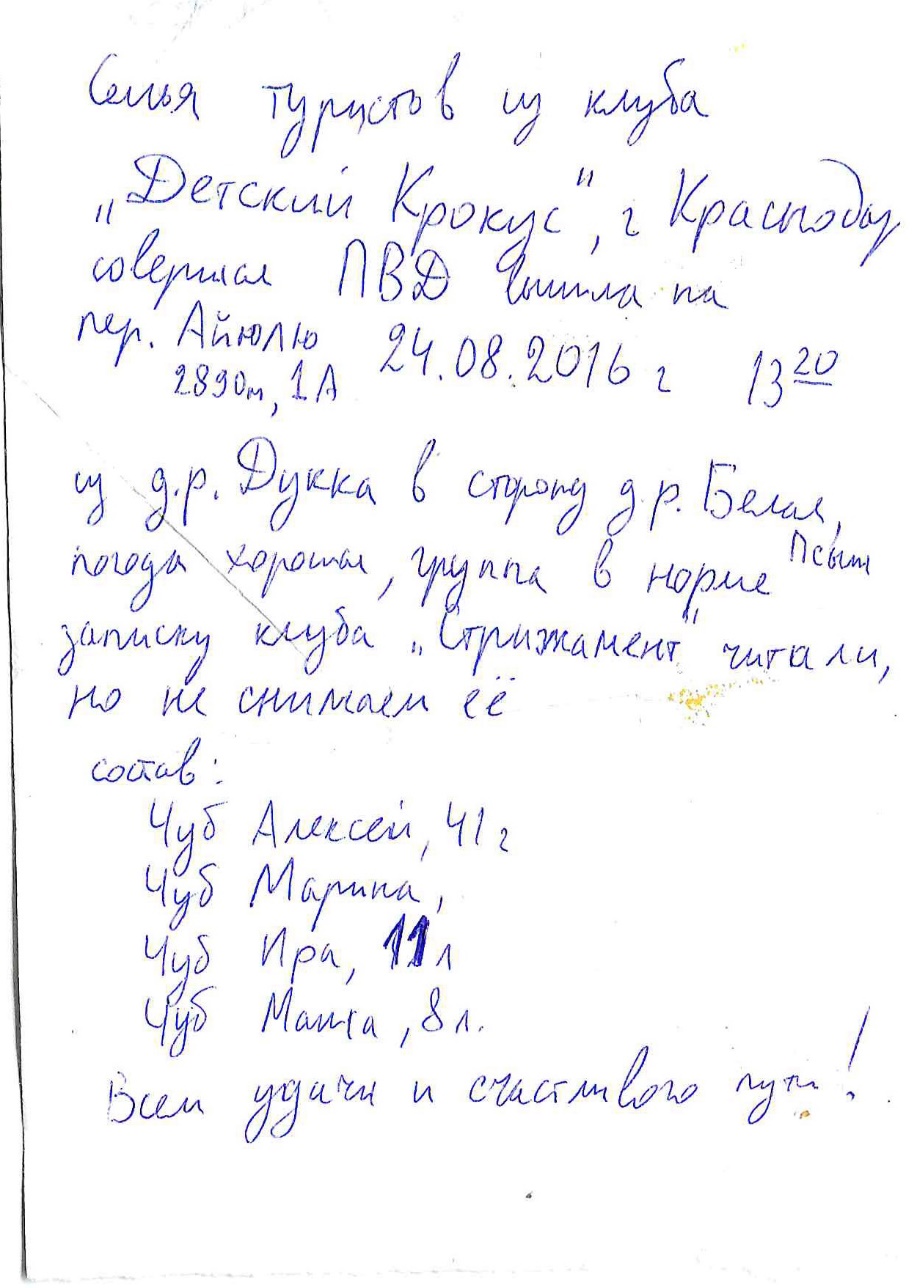 Семья туристов из клуба
„Детский Крокус", г Краснодар
совершая ПВД вышла на
пер. Айюлю 24.08.2016 г 13 20
2890м, 1А
из д.р. Дукка в сторону д.р. Белая,
Псыш
погода хорошая, группа в норме
записку клуба „Стрижамент" читали,
но не снимаем её
состав:
Чуб Алексей, 41 г
Чуб Марина,
Чуб Ира, 11 л
Чуб Маша, 8 л.
Всем удачи и счастливого пути!